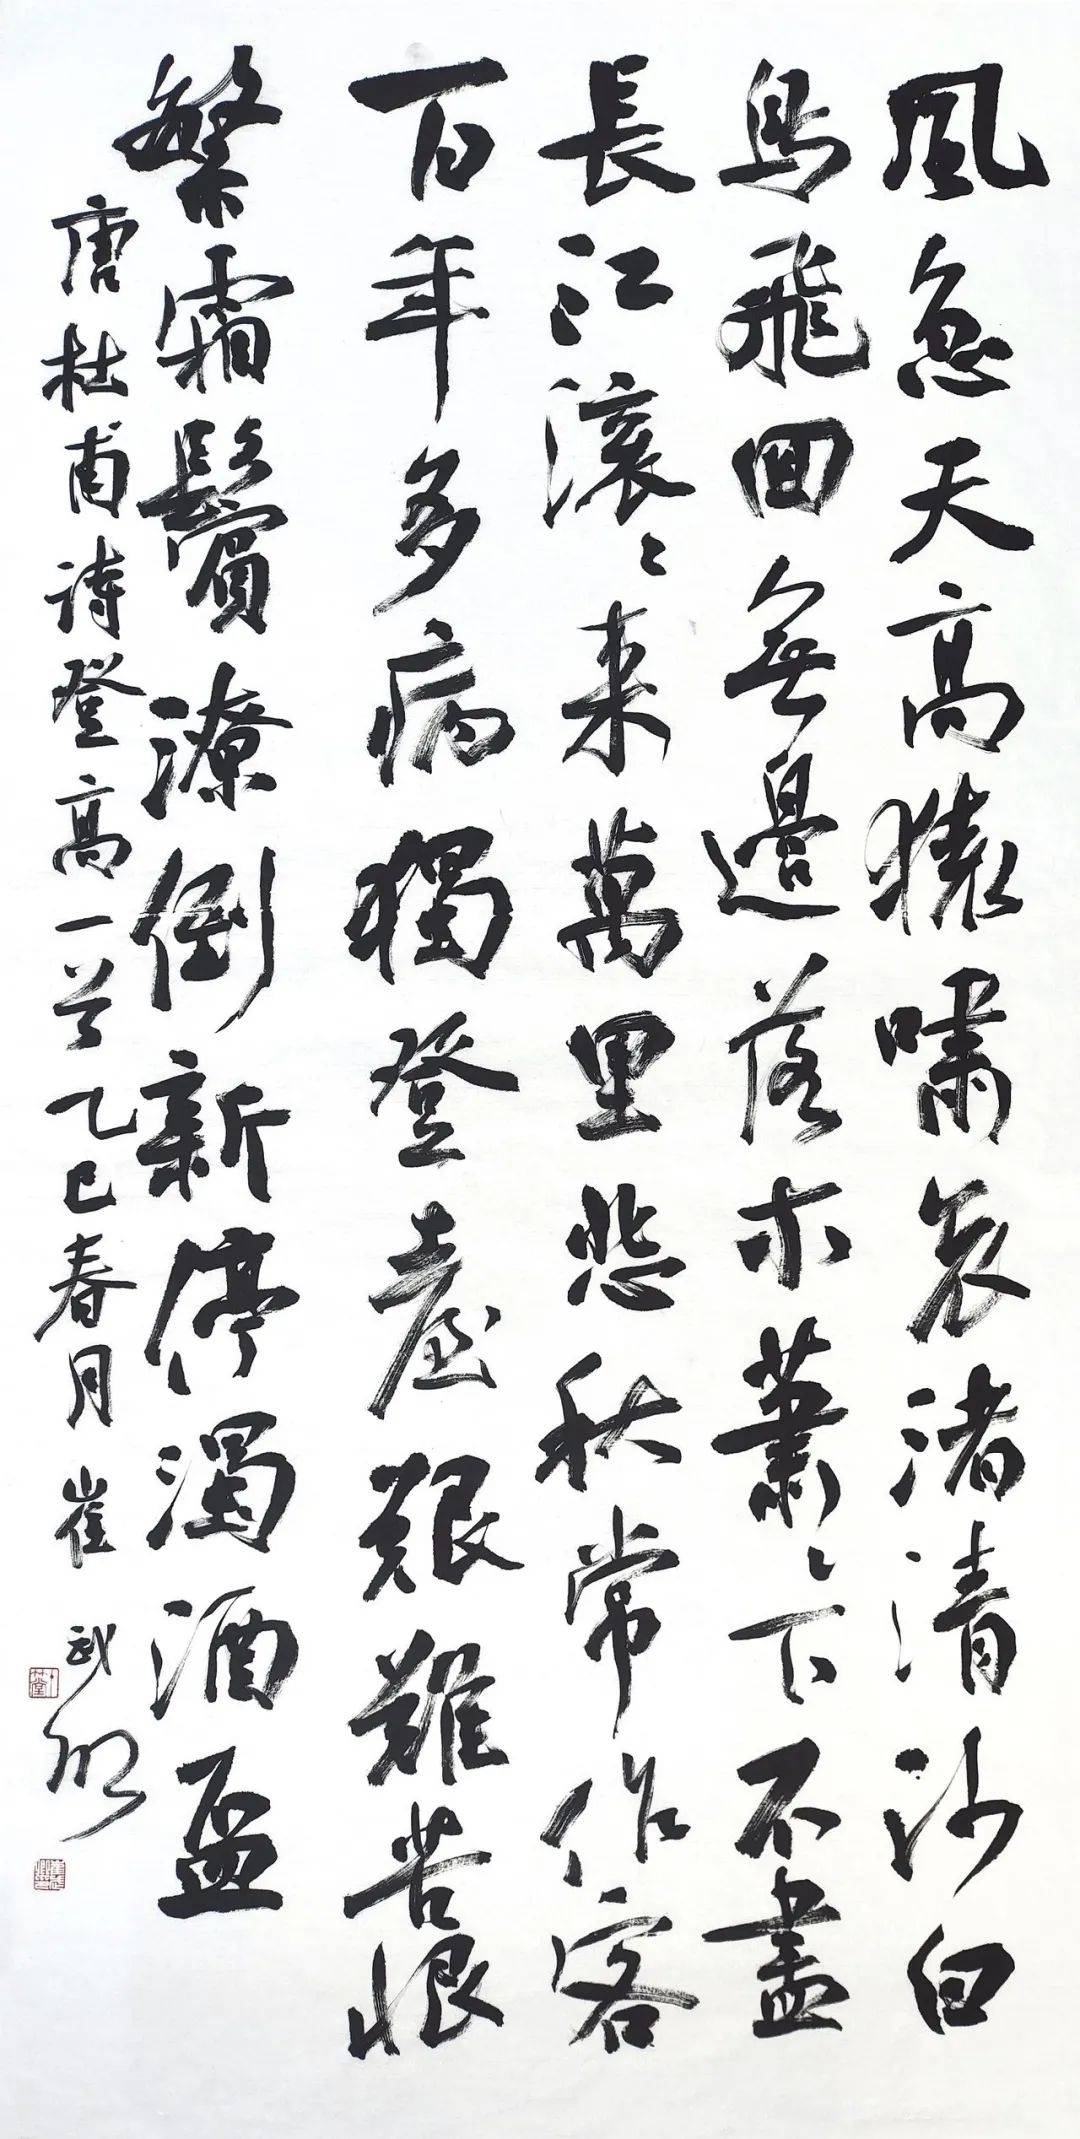 風急天高猿嘯哀渚清沙白
鳥飛回無邊落木蕭〻下不盡
長江滚〻来萬里悲秋常作客
百年多病獨登臺艱難苦恨
繁霜鬢潦倒新停濁酒盃
唐杜甫詩登高一首乙巳春月崔武